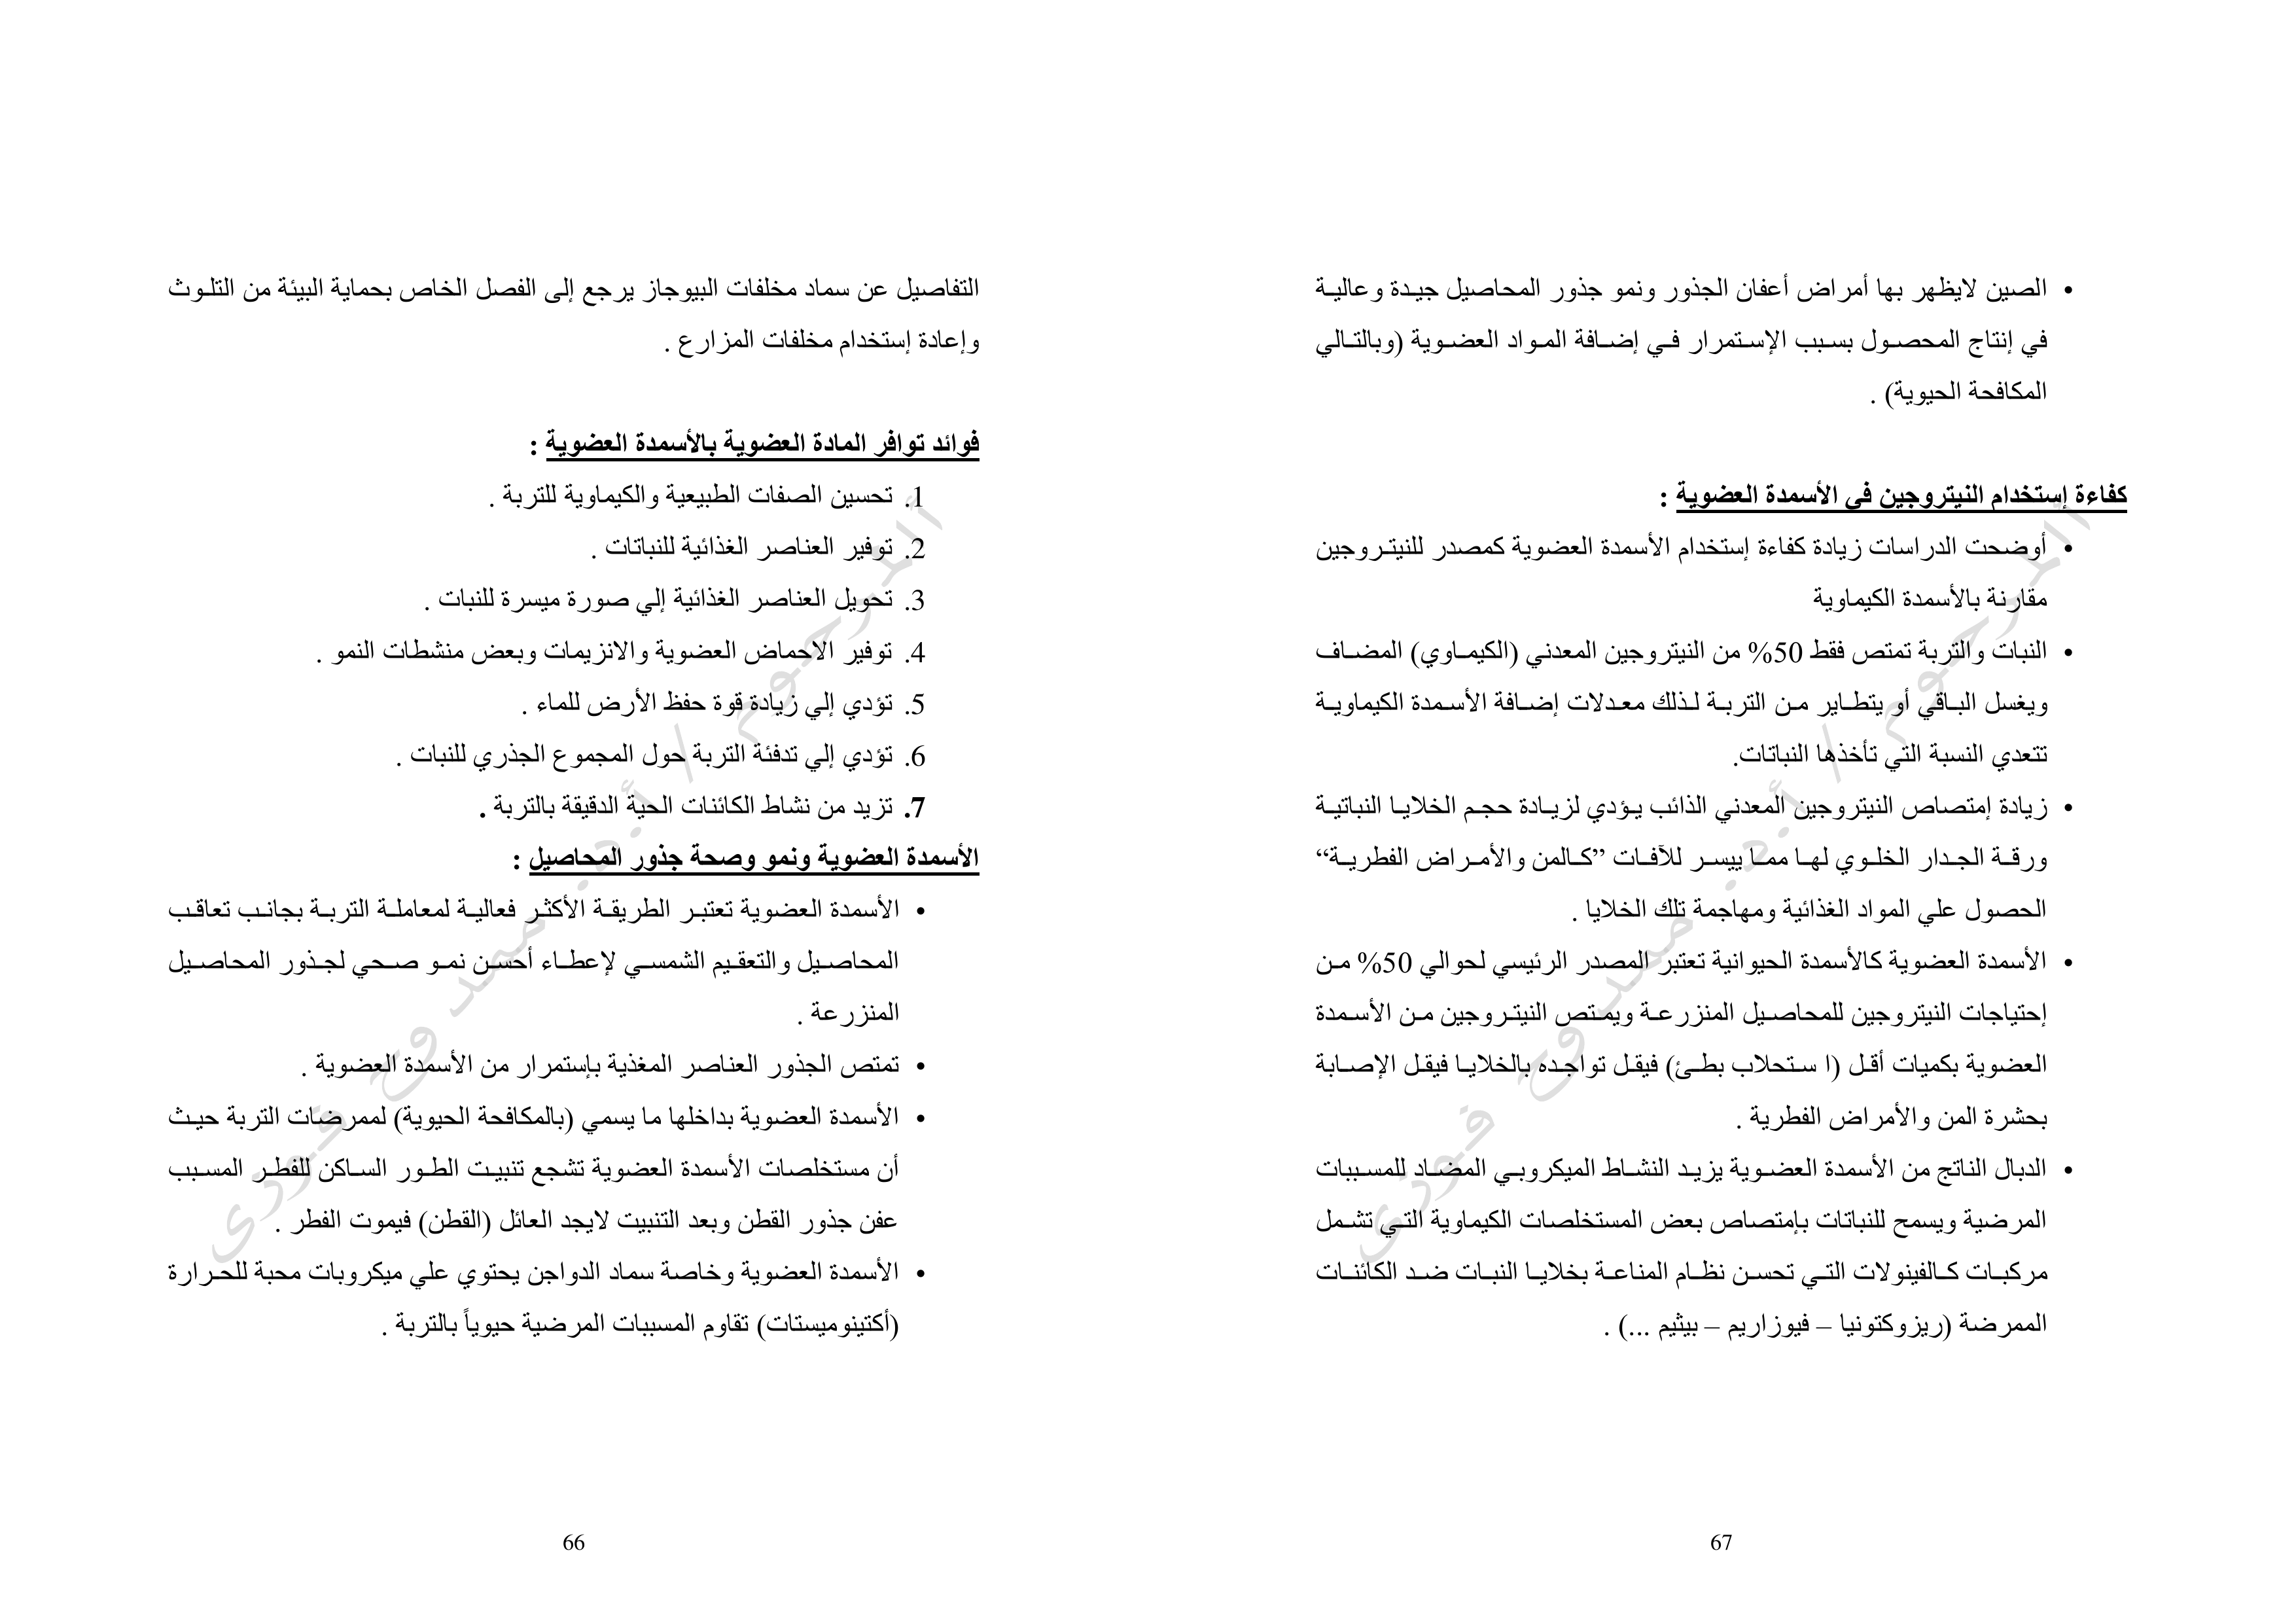 التفاصيل عن سماد مخلفات البيوجاز يرجع إلى الفصل الخاص بحماية البيئة من التلوث
وإعادة إستخدام مخلفات المزارع .
فوائد توافر المادة العضوية بالأسمدة العضوية :
1. تحسين الصفات الطبيعية والكيماوية للتربة .
2. توفير العناصر الغذائية للنباتات .
3. تحويل العناصر الغذائية إلي صورة ميسرة للنبات .
4. توفير الاحماض العضوية والانزيمات وبعض منشطات النمو .
5. تؤدي إلي زيادة قوة حفظ الأرض للماء .
6. تؤدي إلي تدفئة التربة حول المجموع الجذري للنبات .
7. تزيد من نشاط الكائنات الحية الدقيقة بالتربة .
الأسمدة العضوية ونمو وصحة جذور المحاصيل :
• الأسمدة العضوية تعتبر الطريقة الأكثر فعالية لمعاملة التربة بجانب تعاقب
المحاصيل والتعقيم الشمسي لإعطاء أحسن نمو صحي لجذور المحاصيل
المنزرعة .
• تمتص الجذور العناصر المغذية بإستمرار من الأسمدة العضوية .
• الأسمدة العضوية بداخلها ما يسمي (بالمكافحة الحيوية) لممرضات التربة حيث
أن مستخلصات الأسمدة العضوية تشجع تنبيت الطور الساكن للفطر المسبب
عفن جذور القطن وبعد التنبيت لايجد العائل (القطن) فيموت الفطر .
• الأسمدة العضوية وخاصة سماد الدواجن يحتوي علي ميكروبات محبة للحرارة
(أكتينوميستات) تقاوم المسببات المرضية حيوياً بالتربة .
66
المرحوم / أ.د. ممدوح فوزى
• الصين لايظهر بها أمراض أعفان الجذور ونمو جذور المحاصيل جيدة وعالية
في إنتاج المحصول بسبب الإستمرار في إضافة المواد العضوية (وبالتالي
المكافحة الحيوية) .
كفاءة إستخدام النيتروجين في الأسمدة العضوية :
• أوضحت الدراسات زيادة كفاءة إستخدام الأسمدة العضوية كمصدر للنيتروجين
مقارنة بالأسمدة الكيماوية
• النبات والتربة تمتص فقط 50% من النيتروجين المعدني (الكيماوي) المضاف
ويغسل الباقي أو يتطاير من التربة لذلك معدلات إضافة الأسمدة الكيماوية
تتعدي النسبة التي تأخذها النباتات.
• زيادة إمتصاص النيتروجين المعدني الذائب يؤدي لزيادة حجم الخلايا النباتية
ورقة الجدار الخلوي لها مما ييسر للآفات ”كالمن والأمراض الفطرية“
الحصول علي المواد الغذائية ومهاجمة تلك الخلايا .
• الأسمدة العضوية كالأسمدة الحيوانية تعتبر المصدر الرئيسي لحوالي 50% من
إحتياجات النيتروجين للمحاصيل المنزرعة ويمتص النيتروجين من الأسمدة
العضوية بكميات أقل (ا ستحلاب بطئ) فيقل تواجده بالخلايا فيقل الإصابة
بحشرة المن والأمراض الفطرية .
• الدبال الناتج من الأسمدة العضوية يزيد النشاط الميكروبي المضاد للمسببات
المرضية ويسمح للنباتات بإمتصاص بعض المستخلصات الكيماوية التي تشمل
مركبات كالفينولات التي تحسن نظام المناعة بخلايا النبات ضد الكائنات
الممرضة (ريزوكتونيا – فيوزاريم – بيثيم ...) .
67
المرحوم / أ.د. ممدوح فوزى